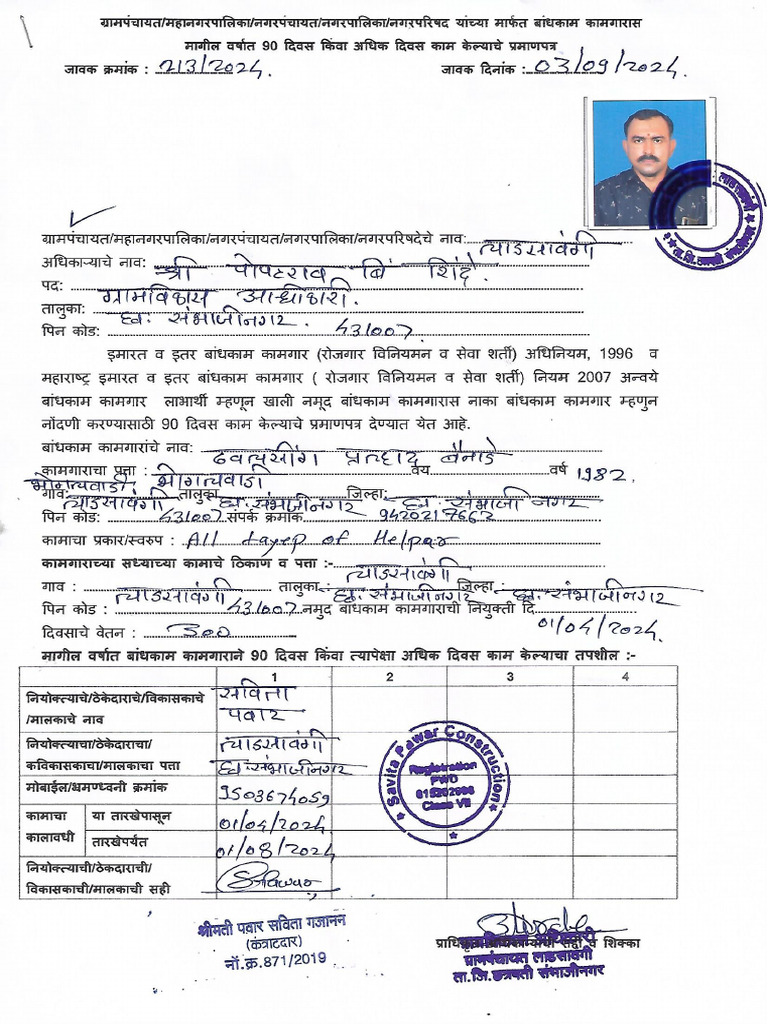 ग्रामपंचायत/महानगरपालिका/नगरपंचायत/नगरपालिका/नगरपरिषद यांच्या मार्फत बांधकाम कामगारास
मागील वर्षात 90 दिवस किंवा अधिक दिवस काम केल्याचे प्रमाणपत्र
जावक क्रमांक : 213/2024 जावक दिनांक : 03/09/2024.
ग्रामपंचायत/महानगरपालिका/नगरपंचायत/नगरपालिका/नगरपरिषदेचे नाव: लाडसावंगी
अधिकाऱ्याचे नाव: श्री पोपटराव बि शिंदे.
पद: ग्रामविकास अधिकारी.
तालुका: छ. संभाजीनगर.
पिन कोड: 431007.
इमारत व इतर बांधकाम कामगार (रोजगार विनियमन व सेवा शर्ती) अधिनियम, 1996 व
महाराष्ट्र इमारत व इतर बांधकाम कामगार ( रोजगार विनियमन व सेवा शर्ती) नियम 2007 अन्वये
बांधकाम कामगार लाभार्थी म्हणून खाली नमूद बांधकाम कामगारास नाका बांधकाम कामगार म्हणुन
नोंदणी करण्यासाठी 90 दिवस काम केल्याचे प्रमाणपत्र देण्यात येत आहे.
बांधकाम कामगारांचे नाव: प्रल्हाद बैनाडे
कामगाराचा पत्ता : वय वर्ष 1982.
गाव: लाडसावंगी तालुका छ. संभाजीनगर जिल्हा: छ. संभाजी नगर
पिन कोड: 431007 संपर्क क्रमांक 9420217662
कामाचा प्रकार/स्वरुप : All tayep of Helpar
कामगाराच्या सध्याच्या कामाचे ठिकाण व पत्ता :- लाडसावंगी
गाव : लाडसावंगी तालुका : छ. संभाजीनगर जिल्हा : छ. संभाजीनगर
पिन कोड : 431007 नमुद बांधकाम कामगाराची नियुक्ती दि. 01/04/2024.
दिवसाचे वेतन : 300
मागील वर्षात बांधकाम कामगाराने 90 दिवस किंवा त्यापेक्षा अधिक दिवस काम केल्याचा तपशील :-
1 2 3 4
नियोक्त्याचे/ठेकेदाराचे/विकासकाचे /मालकाचे नाव सविता पवार
नियोक्त्याचा/ठेकेदाराचा/ कविकासकाचा/मालकाचा पत्ता लाडसावंगी छ. संभाजीनगर
मोबाईल/भ्रमणध्वनी क्रमांक 9503674059
कामाचा कालावधी या तारखेपासून 01/04/2024
तारखेपर्यंत 01/08/2024
नियोक्त्याची/ठेकेदाराची/ विकासकाची/मालकाची सही
Savita Pawar Construction
Registration
PWD
Class VII
श्रीमती पवार सविता गजानन
(कंत्राटदार)
नों.क्र.871/2019
ग्रामपंचायत लाडसावंगी
ता.जि.छत्रपती संभाजीनगर